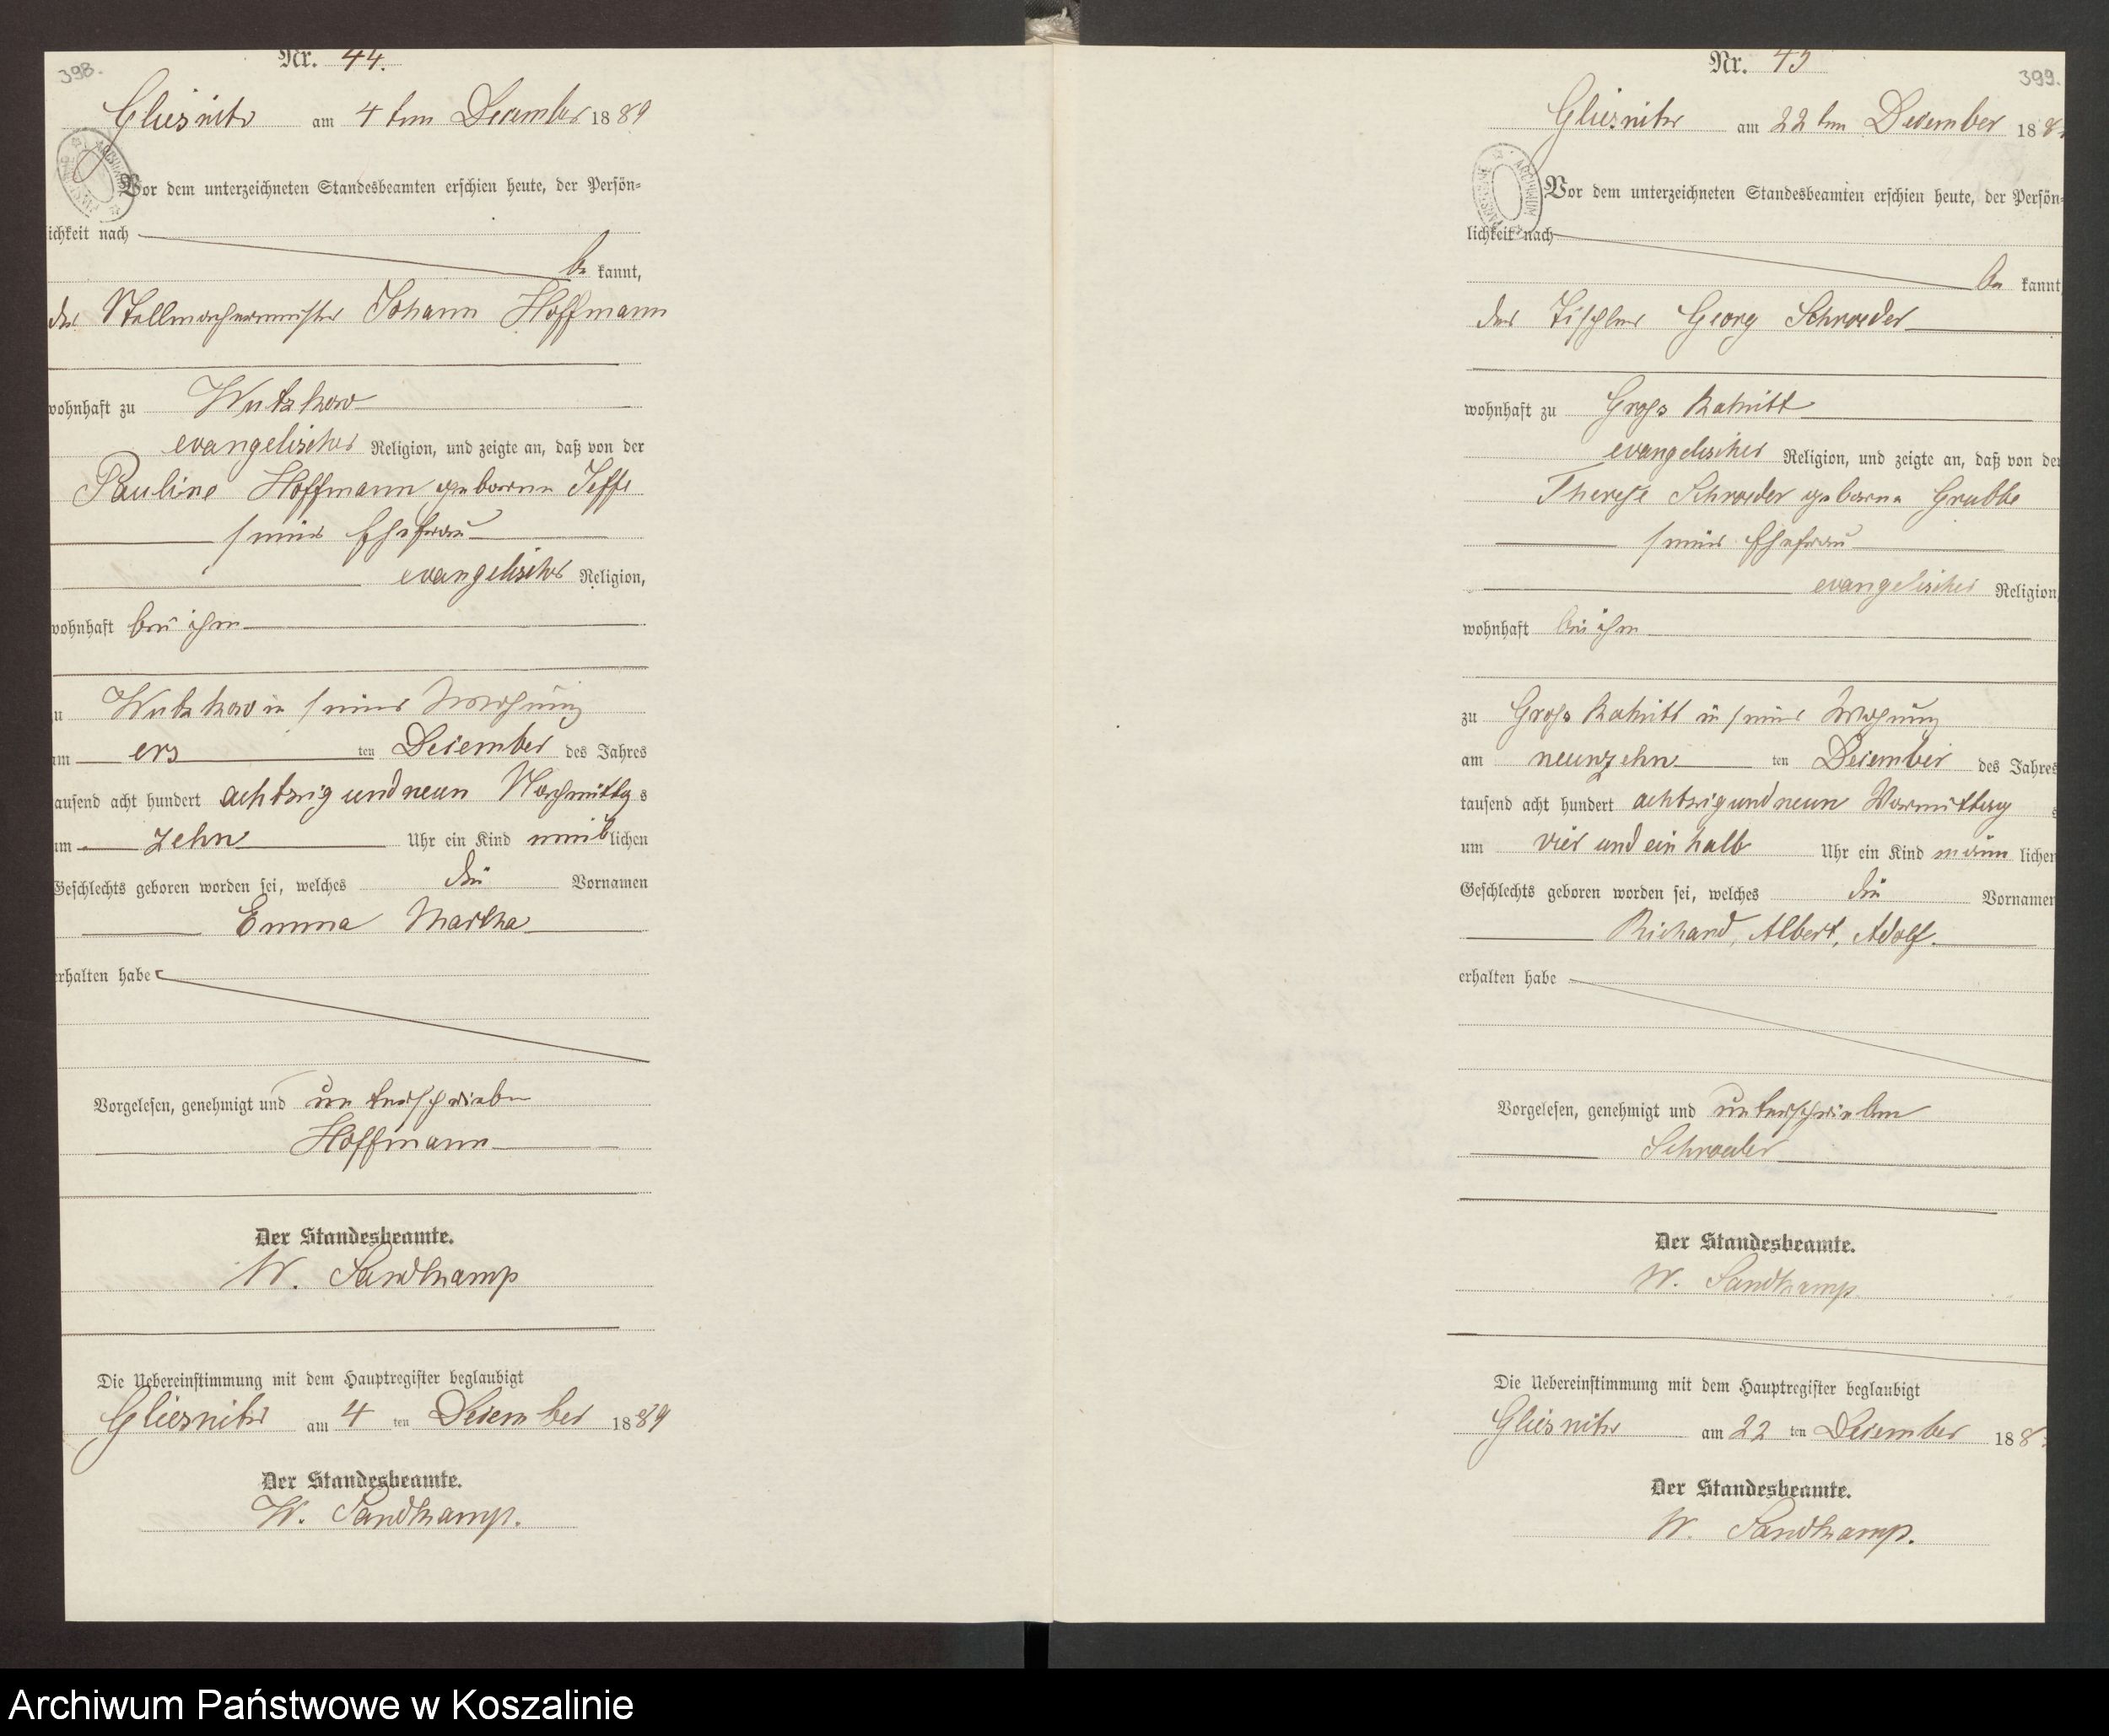 398.
Nr. 44.
Gliesnitz am 4ten December 1889
Vor dem unterzeichneten Standesbeamten erschien heute, der Persön-
lichkeit nach
be kannt,
der Stellmachermeister Johann Hoffmann
wohnhaft zu Wutzkow
evangelischer Religion, und zeigte an, daß von der
Pauline Hoffmann geborne
seiner Ehefrau
evangelischer Religion,
wohnhaft bei ihm
zu Wutzkow in seiner Wohnung
am ers ten December des Jahres
tausend acht hundert achtzig und neun Nachmittags
um zehn Uhr ein Kind weiblichen
Geschlechts geboren worden sei, welches die Vornamen
Emma Martha
erhalten habe
Vorgelesen, genehmigt und unterschrieben
Hoffmann
Der Standesbeamte.
W. Sandkamp
Die Uebereinstimmung mit dem Hauptregister beglaubigt
Gliesnitz am 4 ten December 1889
Der Standesbeamte.
W. Sandkamp.
399.
Nr. 45
Gliesnitz am 22ten December 188
Vor dem unterzeichneten Standesbeamten erschien heute, der Persön-
lichkeit nach
be kannt
der Tischler Georg Schroeder
wohnhaft zu Gross Rakitt
evangelischer Religion, und zeigte an, daß von der
Therese Schroeder geborne Grubbe
seiner Ehefrau
evangelischer Religion
wohnhaft bei ihm
zu Gross Rakitt in seiner Wohnung
am neunzehn ten December des Jahres
tausend acht hundert achtzig und neun Vormittags
um vier und ein halb Uhr ein Kind männ lichen
Geschlechts geboren worden sei, welches die Vornamen
Richard, Albert, Adolf.
erhalten habe
Vorgelesen, genehmigt und unterschrieben
Schroeder
Der Standesbeamte.
W. Sandkamp
Die Uebereinstimmung mit dem Hauptregister beglaubigt
Gliesnitz am 22 ten December 188
Der Standesbeamte.
W. Sandkamp.
Archiwum Państwowe w Koszalinie